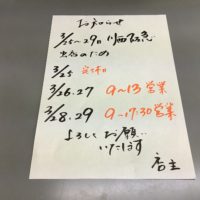 お知らせ
3/25〜29日 川西阪急
出店のため
3/25 定休日
3/26.27 9〜13営業
3/28.29 9〜17:30営業
よろしくお願い
いたします
店主